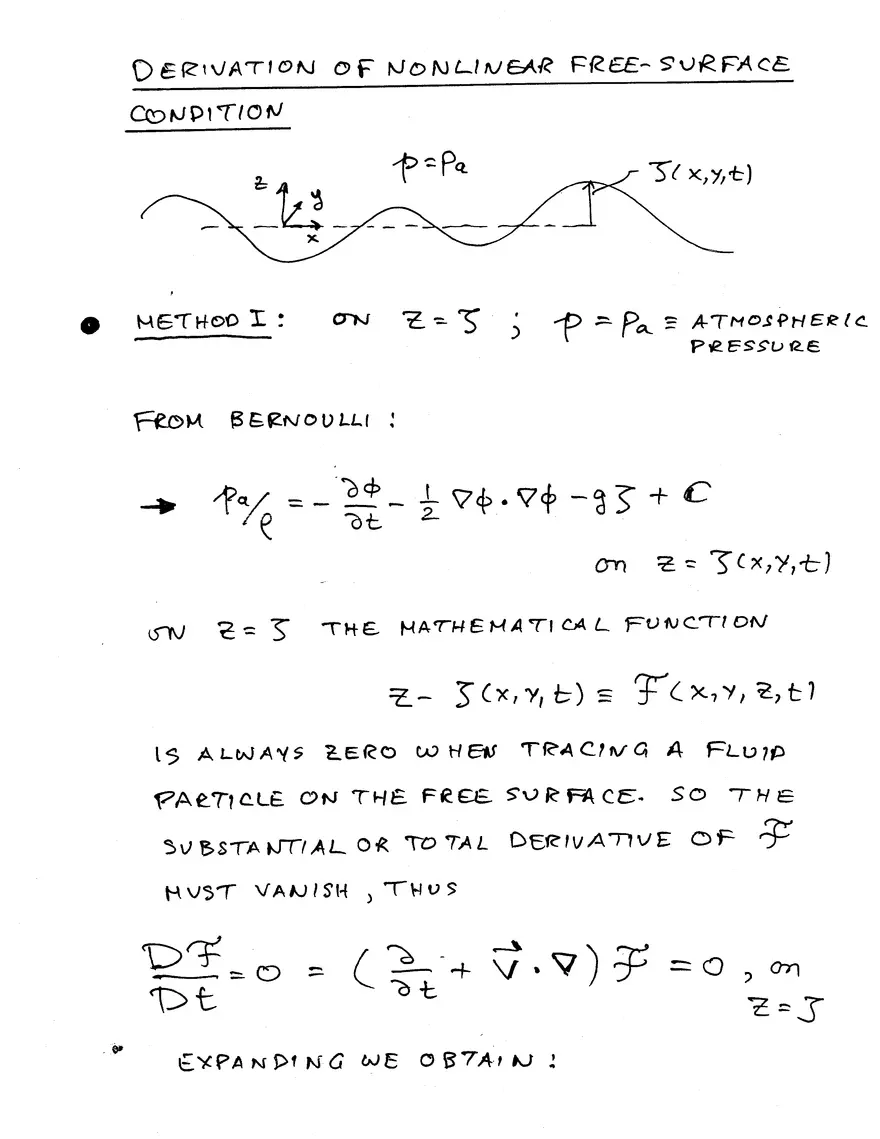 DERIVATION OF NONLINEAR FREE-SURFACE
CONDITION
p = Pa
z
y
x
ζ(x,y,t)
● METHOD I: ON Z = ζ ; p = Pa ≡ ATMOSPHERIC
PRESSURE
FROM BERNOULLI :
→ Pa/ρ = - ∂ϕ/∂t - 1/2 ∇ϕ · ∇ϕ - gζ + C
on z = ζ(x,y,t)
ON Z = ζ THE MATHEMATICAL FUNCTION
Z - ζ(x,y,t) ≡ ℱ(x,y,z,t)
IS ALWAYS ZERO WHEN TRACING A FLUID
PARTICLE ON THE FREE SURFACE. SO THE
SUBSTANTIAL OR TOTAL DERIVATIVE OF ℱ
MUST VANISH, THUS
Dℱ/Dt = 0 = (∂/∂t + V⃗ · ∇) ℱ = 0, on
Z = ζ
EXPANDING WE OBTAIN :